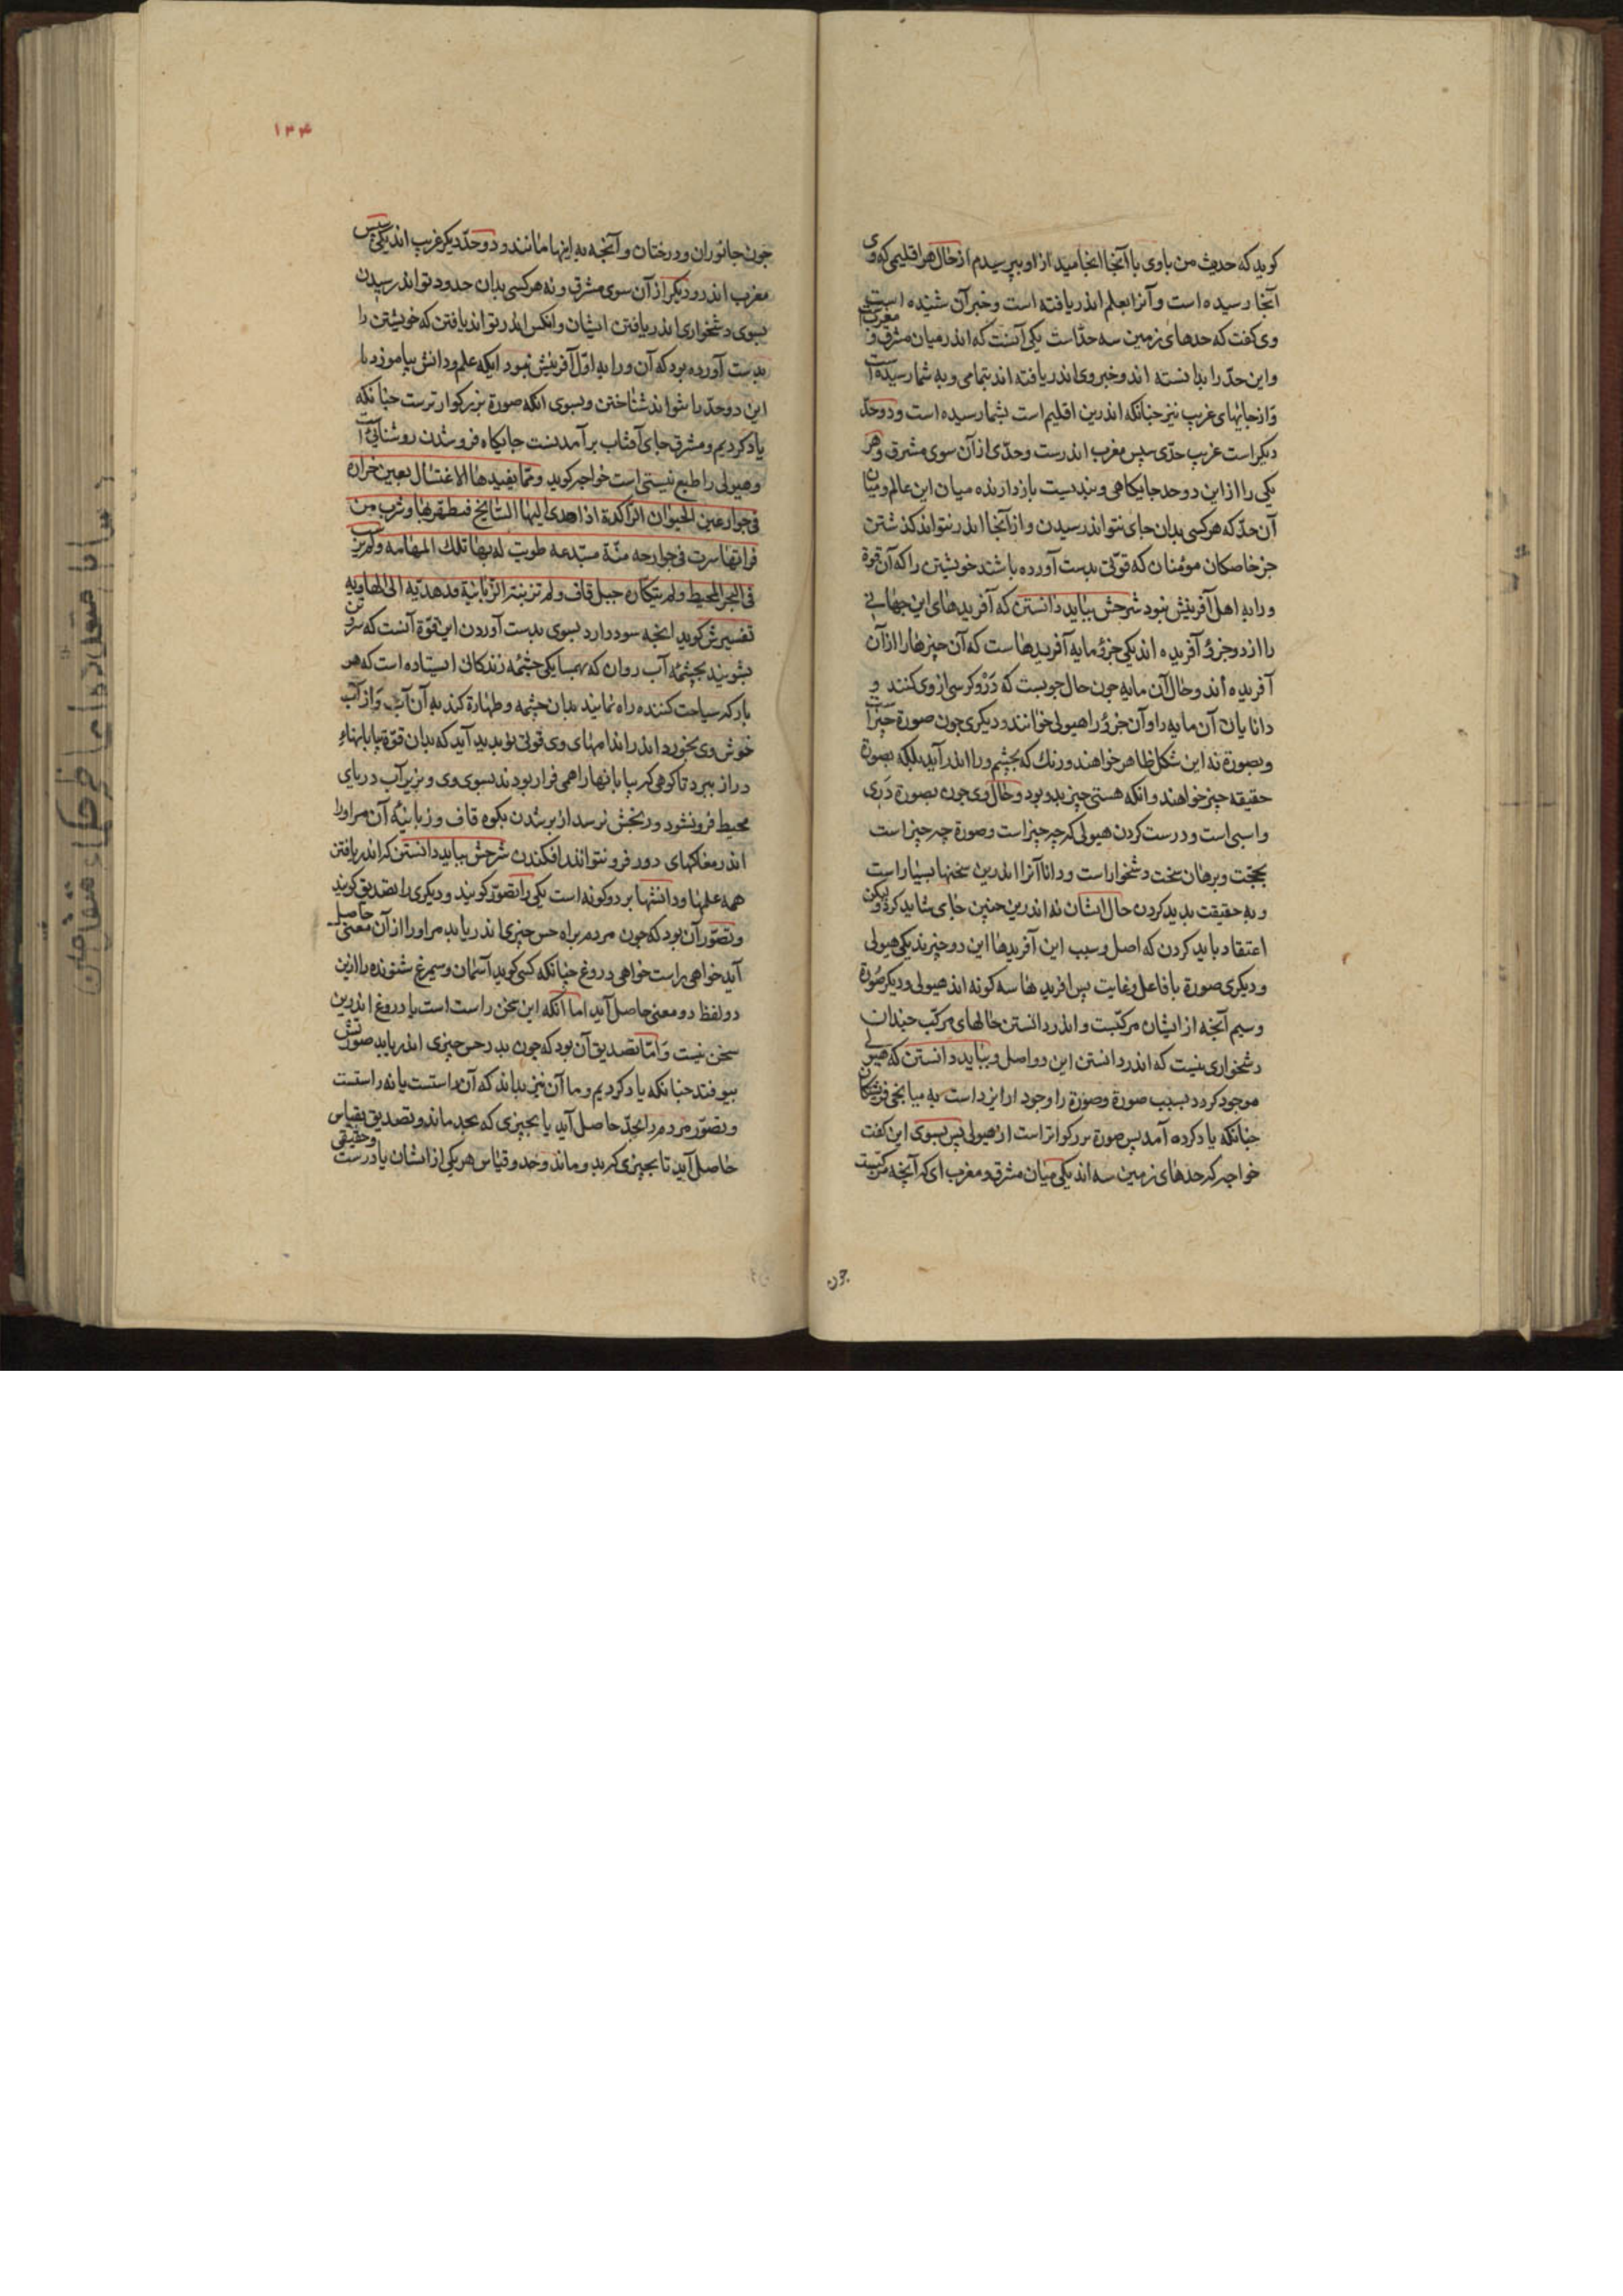 کوید که حدیث من با وی با آنجا انجامید از او بپرسیدم از حال هر اقلیمی که وی
آنجا رسیده است و آنرا بعلم اندر یافته است و خبر آن شنیده است
وی کفت که حدهای زمین سه حدّاست یکی آنست که اندر میان مشرق و مغرب است
و این حدّ را بدانسته اند و خبر وی اندر یافته اند بتمامی و به شما رسیده است
و از جایهای غریب نیز چنانکه اندرین اقلیم است بشما رسیده است و دو حدّ
دیکر است غریب حدّی سپس مغرب اندرست و حدّی از آن سوی مشرق و هر
یکی را از این دو حد جایکاهی و بندیست بازدارنده میان این عالم و میان
آن حدّ که هر کسی بدان جای نتواند رسیدن و از آنجا اندر نتواند کذشتن
جز خاصکان مومنان که قوّتی بدست آورده باشند خویشتن را که آن قوة
ورا به اهل آفرینش نبود شرحش بباید دانستن که آفریدهای این جهانی
را از دو جزؤ آفریده اند یکی جزؤ مایه آفریدهاست که آن چیزها را از آن
آفریده اند و حال آن مایه چون حال چوبست که دَرْ و کرسی از وی کنند و
دانایان آن مایه را و آن جزؤ را هیولی خوانند و دیکری چون صورة چیزاست
و بصورة نه این شکل ظاهر خواهند و رنك که بچشم ورا اندر آید بلکه بصورة
حقیقه چیز خواهند و انکه هستی چیز بدو بود و حال وی چون بصورة دَری
و اسبی است و درست کردن هیولی که چه چیز است و صورة چه چیز است
بحجّت و برهان سخت دشخوار است و دانا آنرا اندرین سخنها بسیار است
و به حقیقت بدید کردن حال ایشان نه اندرین چنین جای شاید کرد ولیکن
اعتقاد باید کردن که اصل و سبب این آفریدها این دو چیزند یکی هیولی
و دیکری صورة با فاعل و غایت پس افریدها سه کونه اند هیولی و دیکر صورة
و سیم آنچه از ایشان مرکّبست و اندر دانستن حالهای مرکّب چندان
دشخواری نیست که اندر دانستن این دو اصل و بباید دانستن که هیولی
موجود کردد بسبب صورة و صورة را وجود از ایزد است به میانجی فرشتکان
چنانکه یاد کرده آمد پس صورة بزرکوارتر است از هیولی پس بسوی این کفت
خواجه که حدهای زمین سه اند یکی میان مشرق و مغرب ای که آنچه مرکّبست
چون
۱۳۴
چون جانوران و درختان و آنچه به اینها مانند و دو حدّ دیکر غریب اند یکی سپس
مغرب اندر و دیکر از آن سوی مشرق و نه هر کسی بدان حدود تواند رسیدن
بسوی دشخواری اندر یافتن ایشان و آنکس اندر تواند یافتن که خویشتن را
بدست آورده بود که آن ورا به اوّل آفرینش نبود ایکه علم و دانش بیاموزد تا
این دو حدّ بتواند شناختن و بسوی انکه صورة بزرکوارترست چنانکه
یاد کردیم و مشرق جای آفتاب برآمدنست جایکاه فروشدن روشنایی است
و هیولی را طبع نیستی است خواجه کوید و ممّا یفیدها الاغتسال بعین خرارة
فی جوار عین الحیوان الرّاکدة اذا اهدی الیها السّایح فتطهّر بها و شرب من
فراتها سرت فی جوارحه منّة مبتدعة طویت له بها تلك المهامه و لم یرسب
فی البحر المحیط و لم یتکأده جبل قاف و لم تزبنه الزّبانیة مدهدهة الی الهاویه
تفسیرش کوید انچه سود دارد بسوی بدست آوردن این قوّة آنست که سر و تن
بشویند بچشمه آب روان که بهمسایکی چشمه زندکانی ایستاده است که هر
بار که سیاحت کننده راه نمایند بدان چشمه و طهارة کند به آن آب و از آب
خوش وی بخورد اندر اندامهای وی قوتی نو بدید آید که بدان قوّة بیابانهاء
دراز ببرد تا کوهی که بیابانها را همی فراز بودند بسوی وی و بزیر آب دریای
محیط فرو نشود و رنجش نرسد از برشدن بکوه قاف و زبانیهٔ آن مر او را
اندر مغاکهای دور فرو نتوانند افکندن شرحش بباید دانستن که اندر یافتن
همه علمها و دانشها بر دو کونه است یکی را تصوّر کویند و دیکری را تصدیق کویند
و تصوّر آن بود که چون مردم براه حس چیزی اندر یابد مر او را از آن معنی حاصل
آید خواهی راست خواهی دروغ چنانکه کسی کوید آسمان و سیمرغ شنونده را ازین
دو لفظ دو معنی حاصل آید اما آنکه این سخن راست است یا دروغ اندرین
سخن نیست و امّا تصدیق آن بود که چون بدر حس چیزی اندر یابد صورتش
بیوفتد چنانکه یاد کردیم و ما آن نیز بداند که آن راستست یا نه راستست
و تصوّر مردم را بحدّ حاصل آید یا بچیزی که بحد ماند و تصدیق بقیاس
حاصل آید تا بچیزی که بدو ماند و حد و قیاس هر یکی از ایشان یا درست و حقیقی